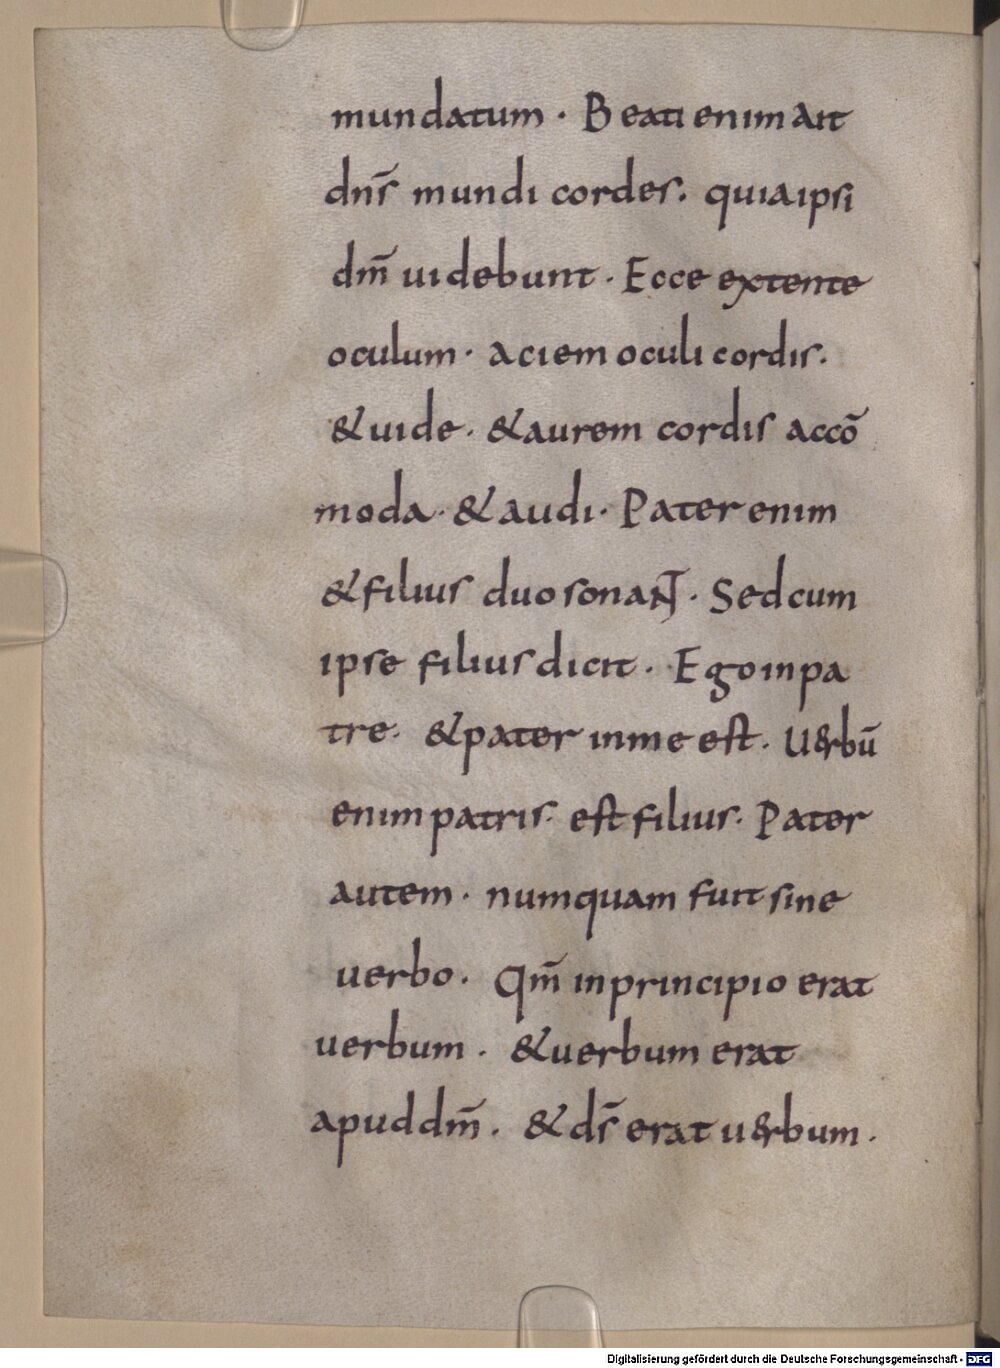 mundatum · Beati enim ait
dn̄s mundi cordes. quia ipsi
dm̄ uidebunt · Ecce extente
oculum · aciem oculi cordis.
& uide · & aurem cordis accō
moda · & audi · Pater enim
& filius duo sonant · Sed cum
ipse filius dicit · Ego in pa
tre · & pater in me est · Uerbū
enim patris · est filius · Pater
autem · numquam fuit sine
uerbo · Qm̄ in principio erat
uerbum · & uerbum erat
apud dm̄ · & ds̄ erat uerbum ·
Digitalisierung gefördert durch die Deutsche Forschungsgemeinschaft - DFG